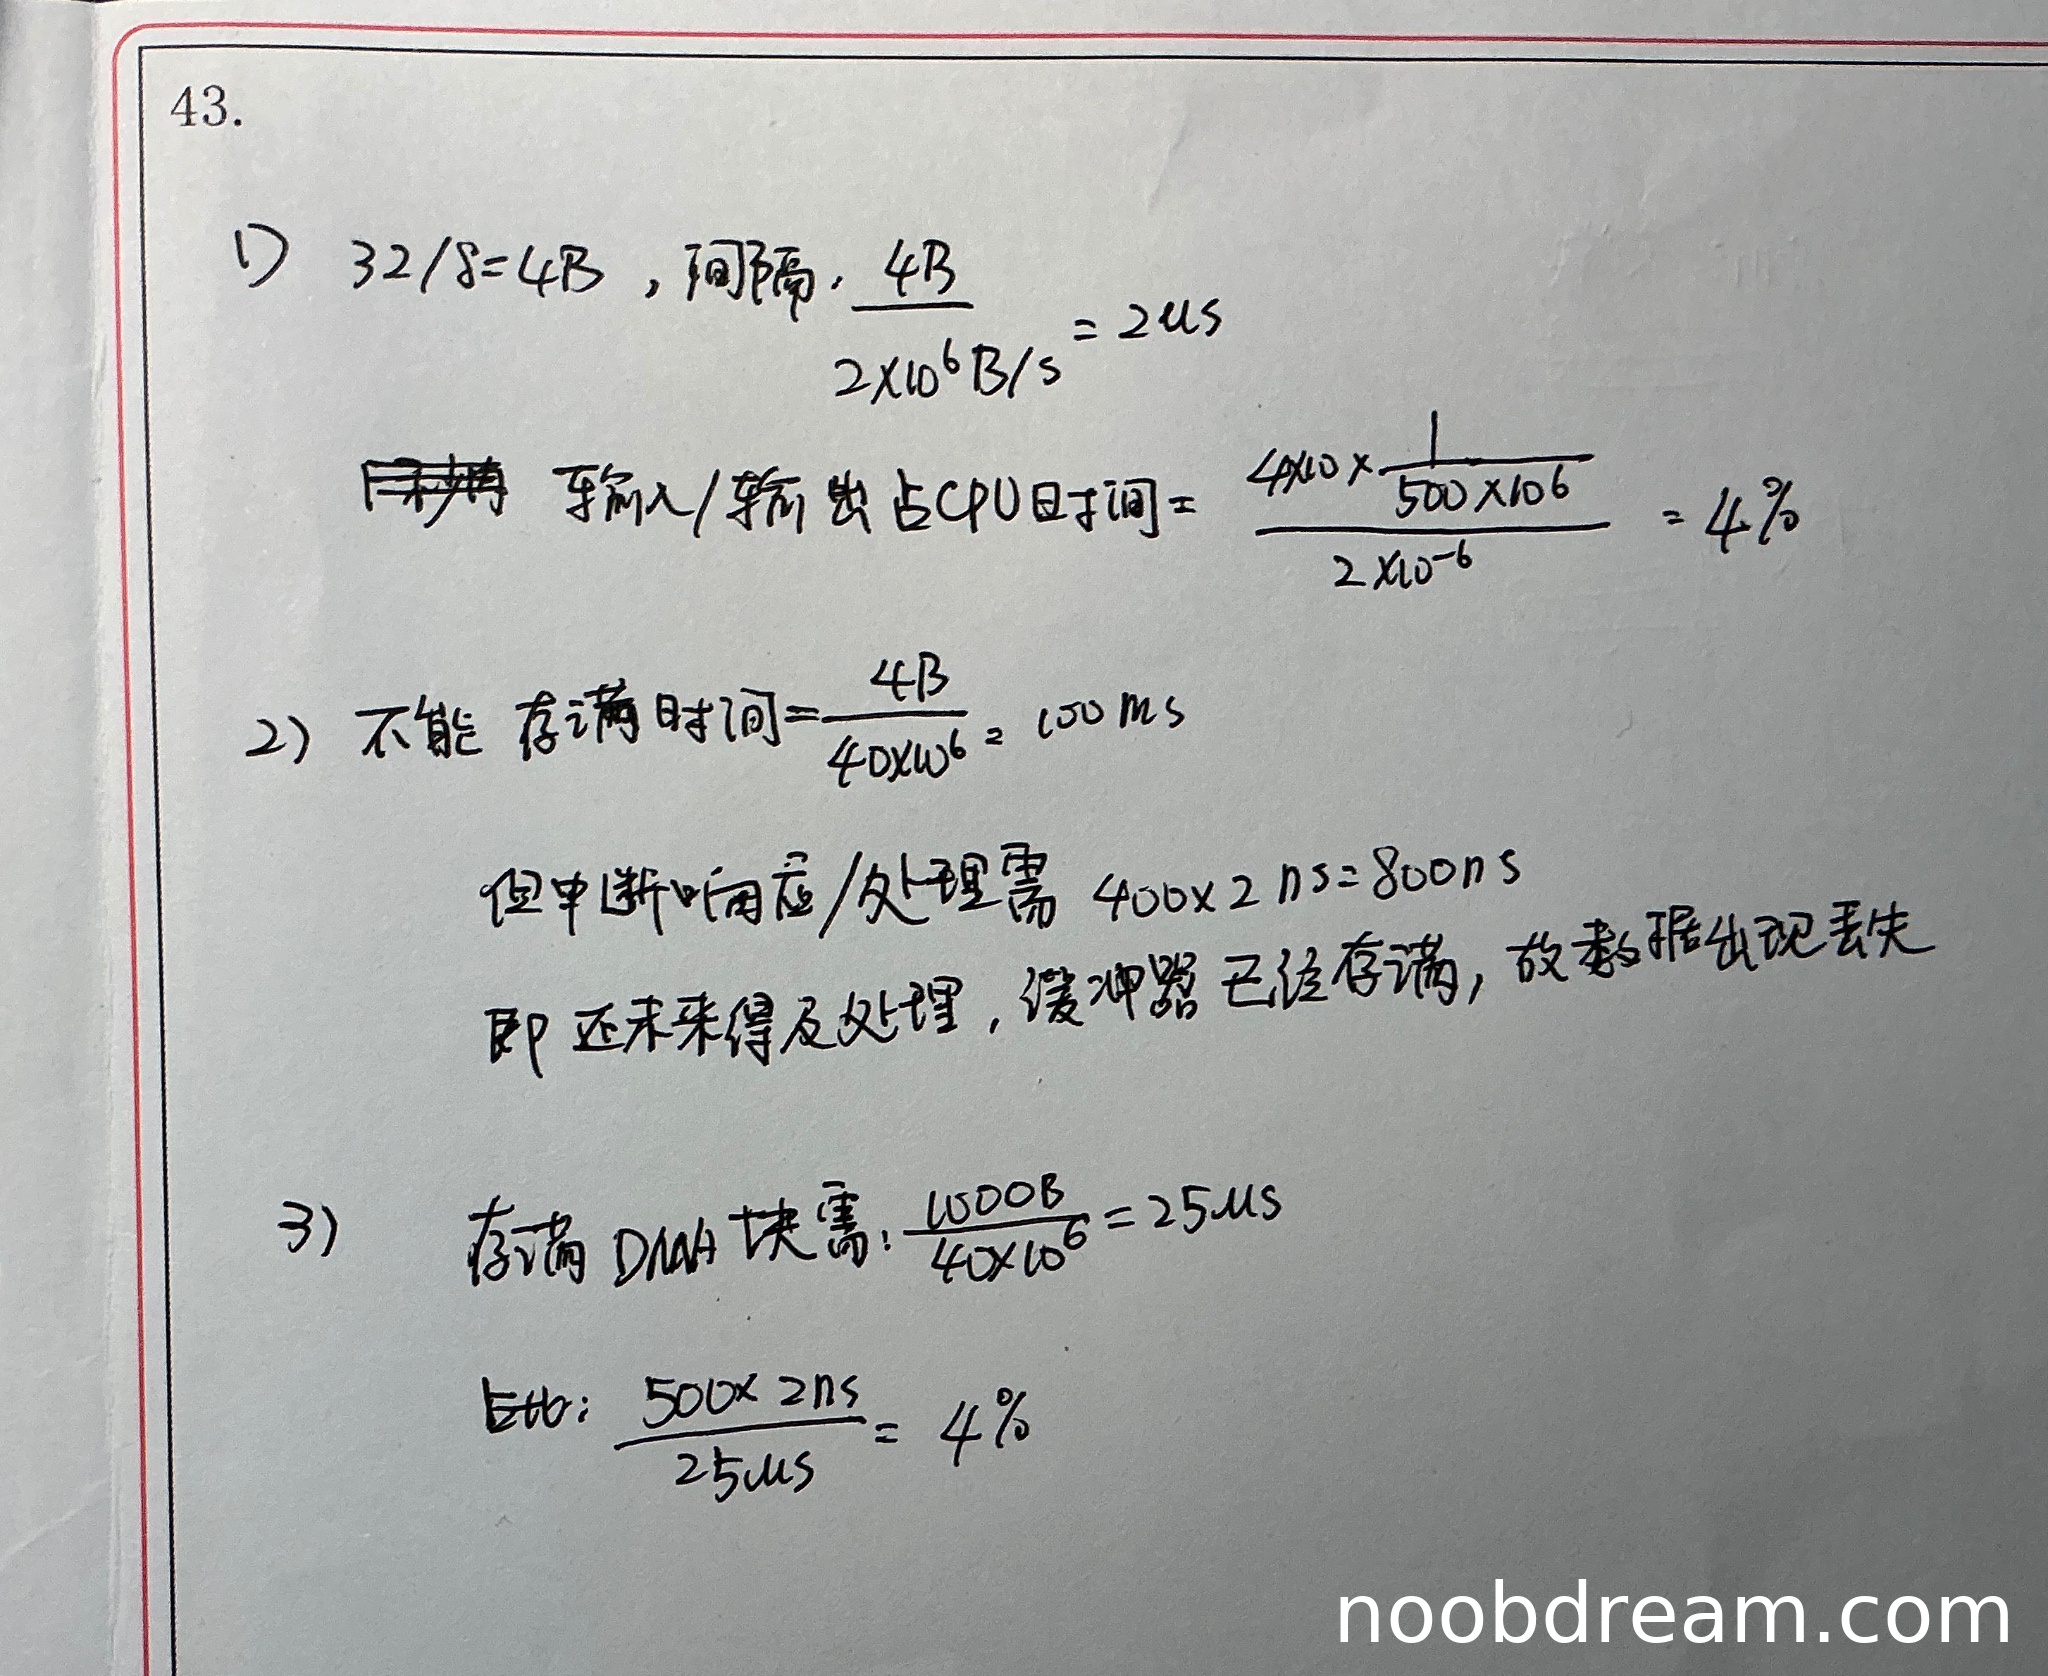 43.
1) 32/8=4B，间隔. 4B / 2×10⁶B/s = 2us
输入/输出占CPU时间= 4×10×1/500×10⁶ / 2×10⁻⁶ = 4%
2) 不能 存满时间= 4B / 40×10⁶ = 100ms
但中断响应/处理需 400×2ns=800ns
即还未来得及处理，缓冲器已经存满，故数据出现丢失
3) 存满DMA块需: 1000B / 40×10⁶ = 25us
占比: 500×2ns / 25us = 4%
noobdream.com